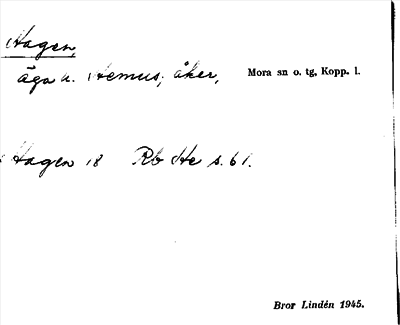 Hagen,
äga u. Hemus; åker, Mora sn o. tg, Kopp. l.
Hagen 18 Rb He s. 61.
Bror Lindén 1945.